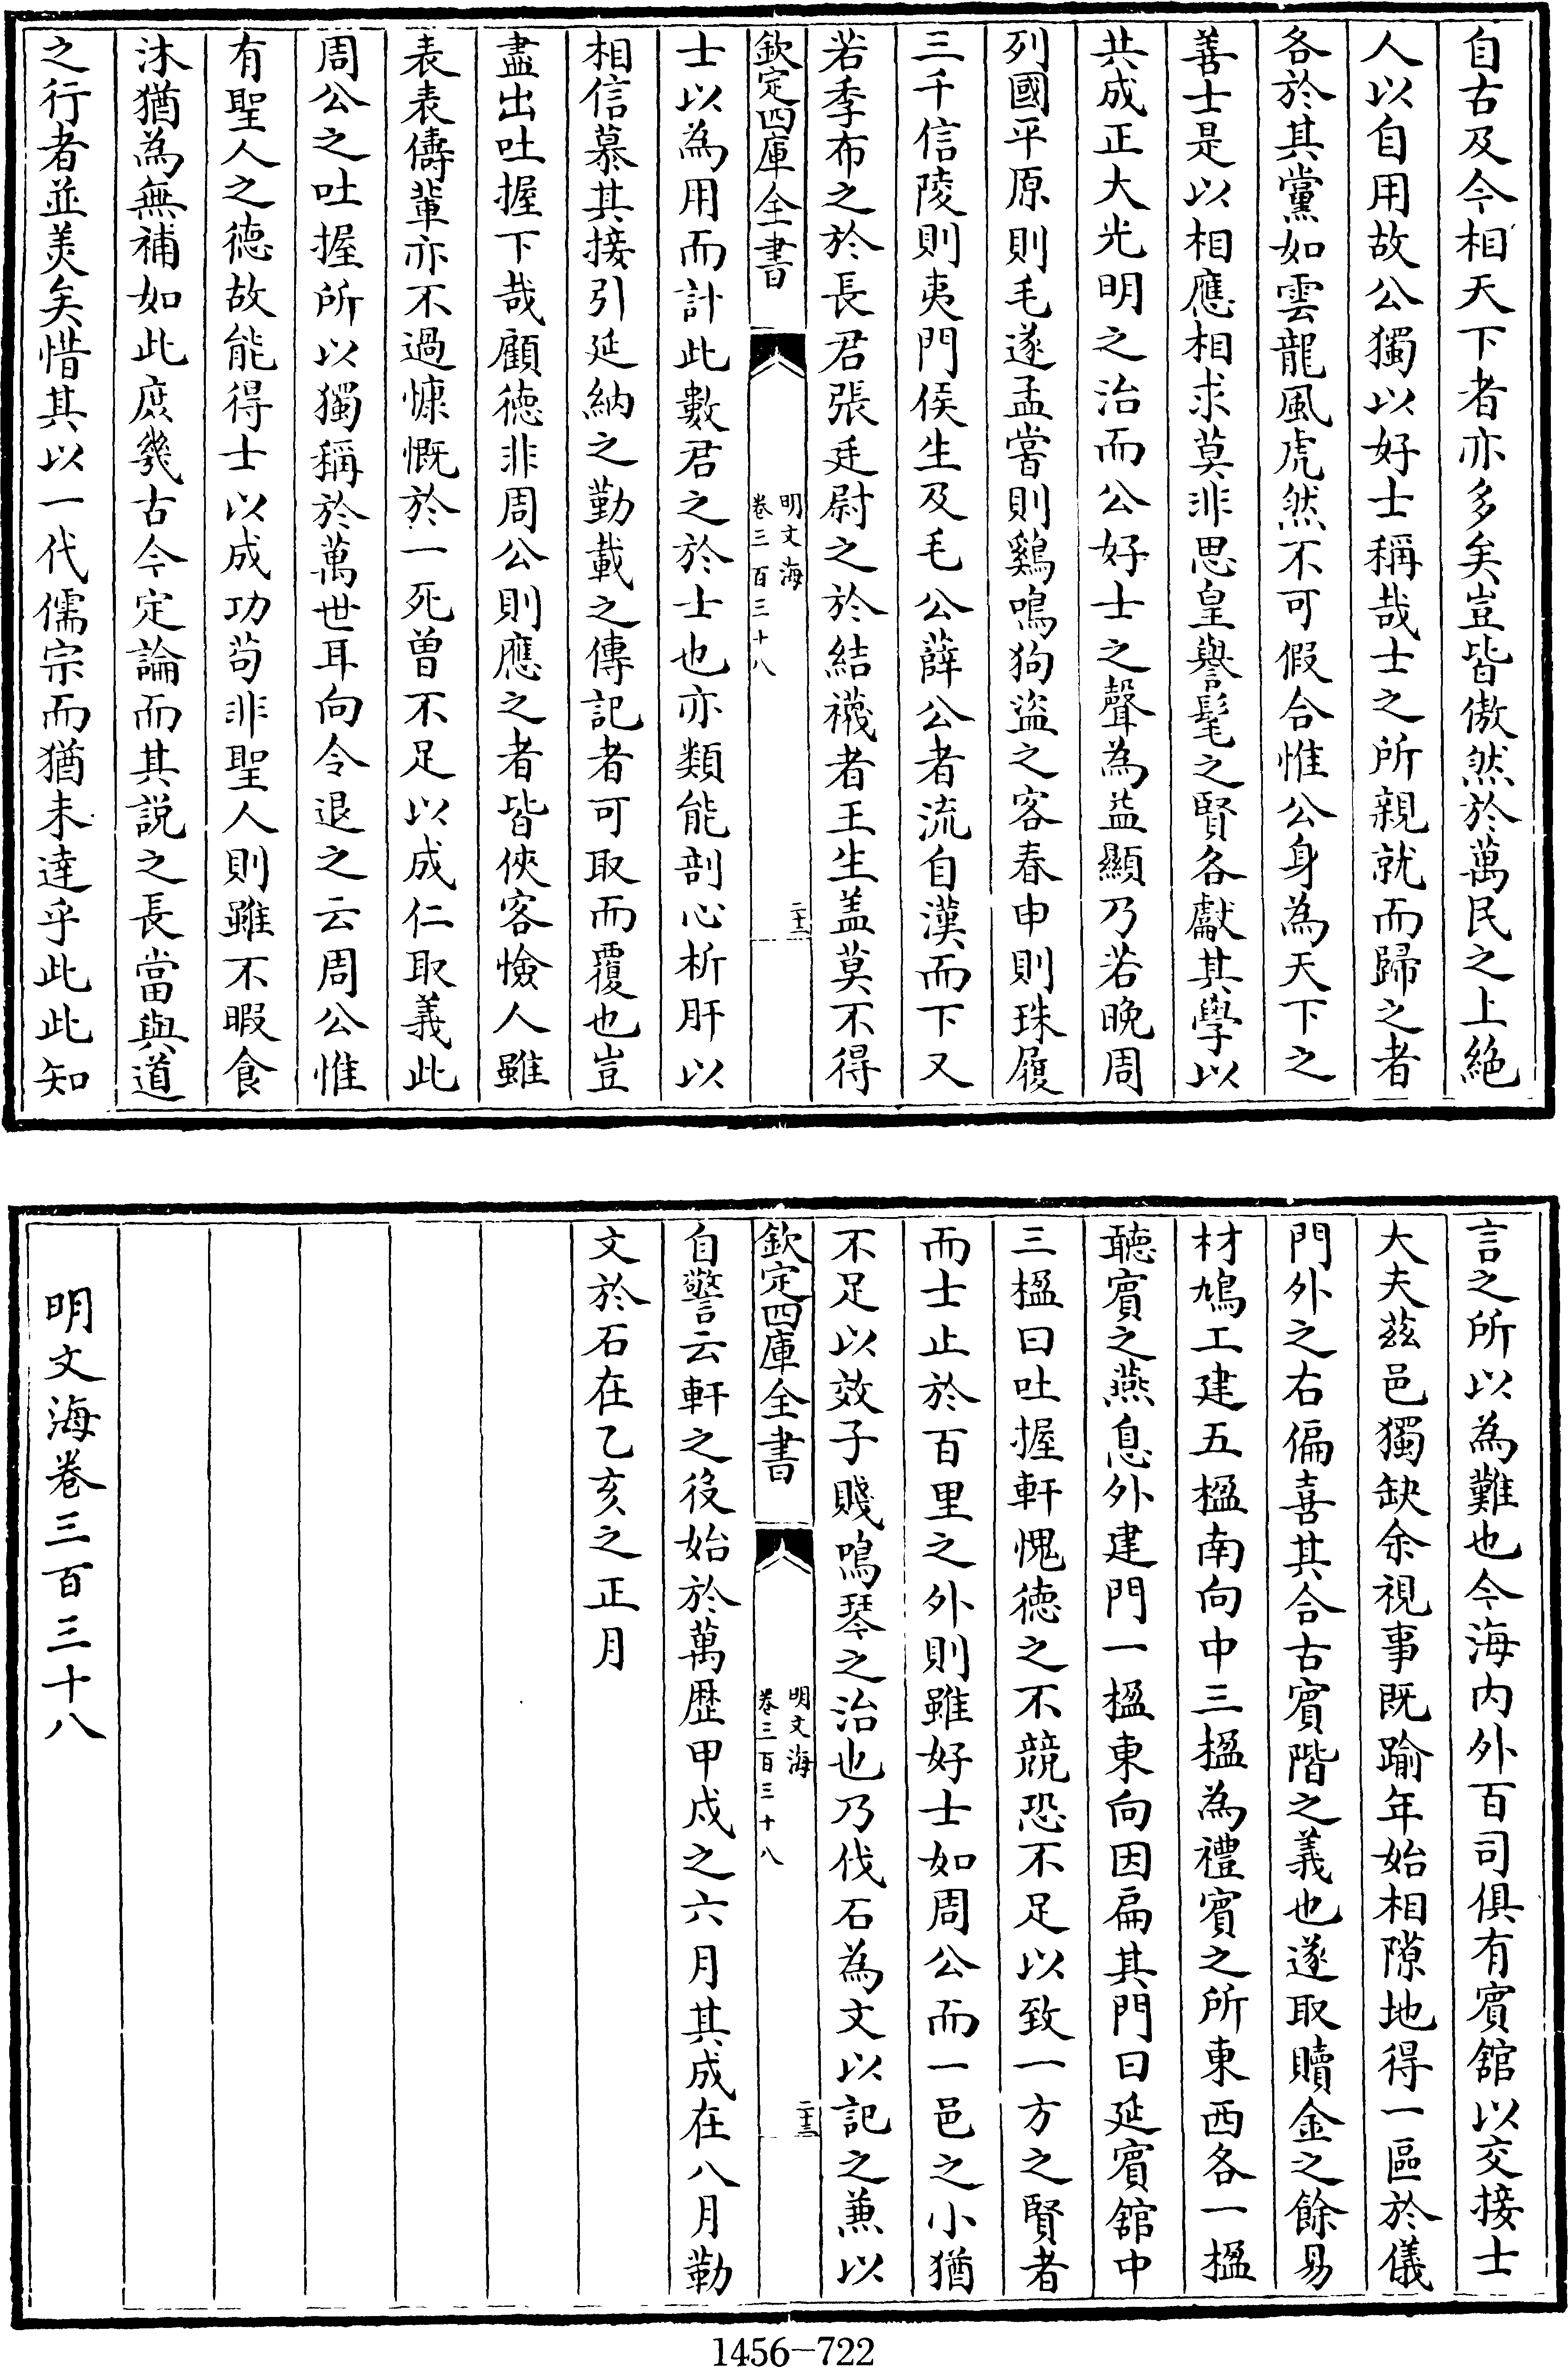 自古及今相天下者亦多矣豈皆傲然於萬民之上絶
人以自用故公獨以好士稱哉士之所親就而歸之者
各於其黨如雲龍風虎然不可假合惟公身為天下之
善士是以相應相求莫非思皇譽髦之賢各獻其學以
共成正大光明之治而公好士之聲為益顯乃若晚周
列國平原則毛遂孟嘗則鷄鳴狗盜之客春申則珠履
三千信陵則夷門侯生及毛公薛公者流自漢而下又
若季布之於長君張廷尉之於結襪者王生盖莫不得
欽定四庫全書
明文海
卷三百三十八
二十二
士以為用而計此數君之於士也亦類能剖心析肝以
相信慕其接引延納之勤載之傳記者可取而覆也豈
盡出吐握下哉顧德非周公則應之者皆俠客憸人雖
表表儔輩亦不過慷慨於一死曽不足以成仁取義此
周公之吐握所以獨稱於萬世耳向令退之云周公惟
有聖人之德故能得士以成功茍非聖人則雖不暇食
沐猶為無補如此庶幾古今定論而其説之長當與道
之行者並美矣惜其以一代儒宗而猶未達乎此此知
言之所以為難也今海内外百司俱有賓舘以交接士
大夫兹邑獨缺余視事既踰年始相隙地得一區於儀
門外之右偏喜其合古賓階之義也遂取贖金之餘易
材鳩工建五楹南向中三楹為禮賓之所東西各一楹
聽賓之燕息外建門一楹東向因扁其門曰延賓舘中
三楹曰吐握軒愧德之不競恐不足以致一方之賢者
而士止於百里之外則雖好士如周公而一邑之小猶
不足以效子賤鳴琴之治也乃伐石為文以記之兼以
欽定四庫全書
明文海
卷三百三十八
二十三
自警云軒之役始於萬歴甲戌之六月其成在八月勒
文於石在乙亥之正月
明文海卷三百三十八
1456—722